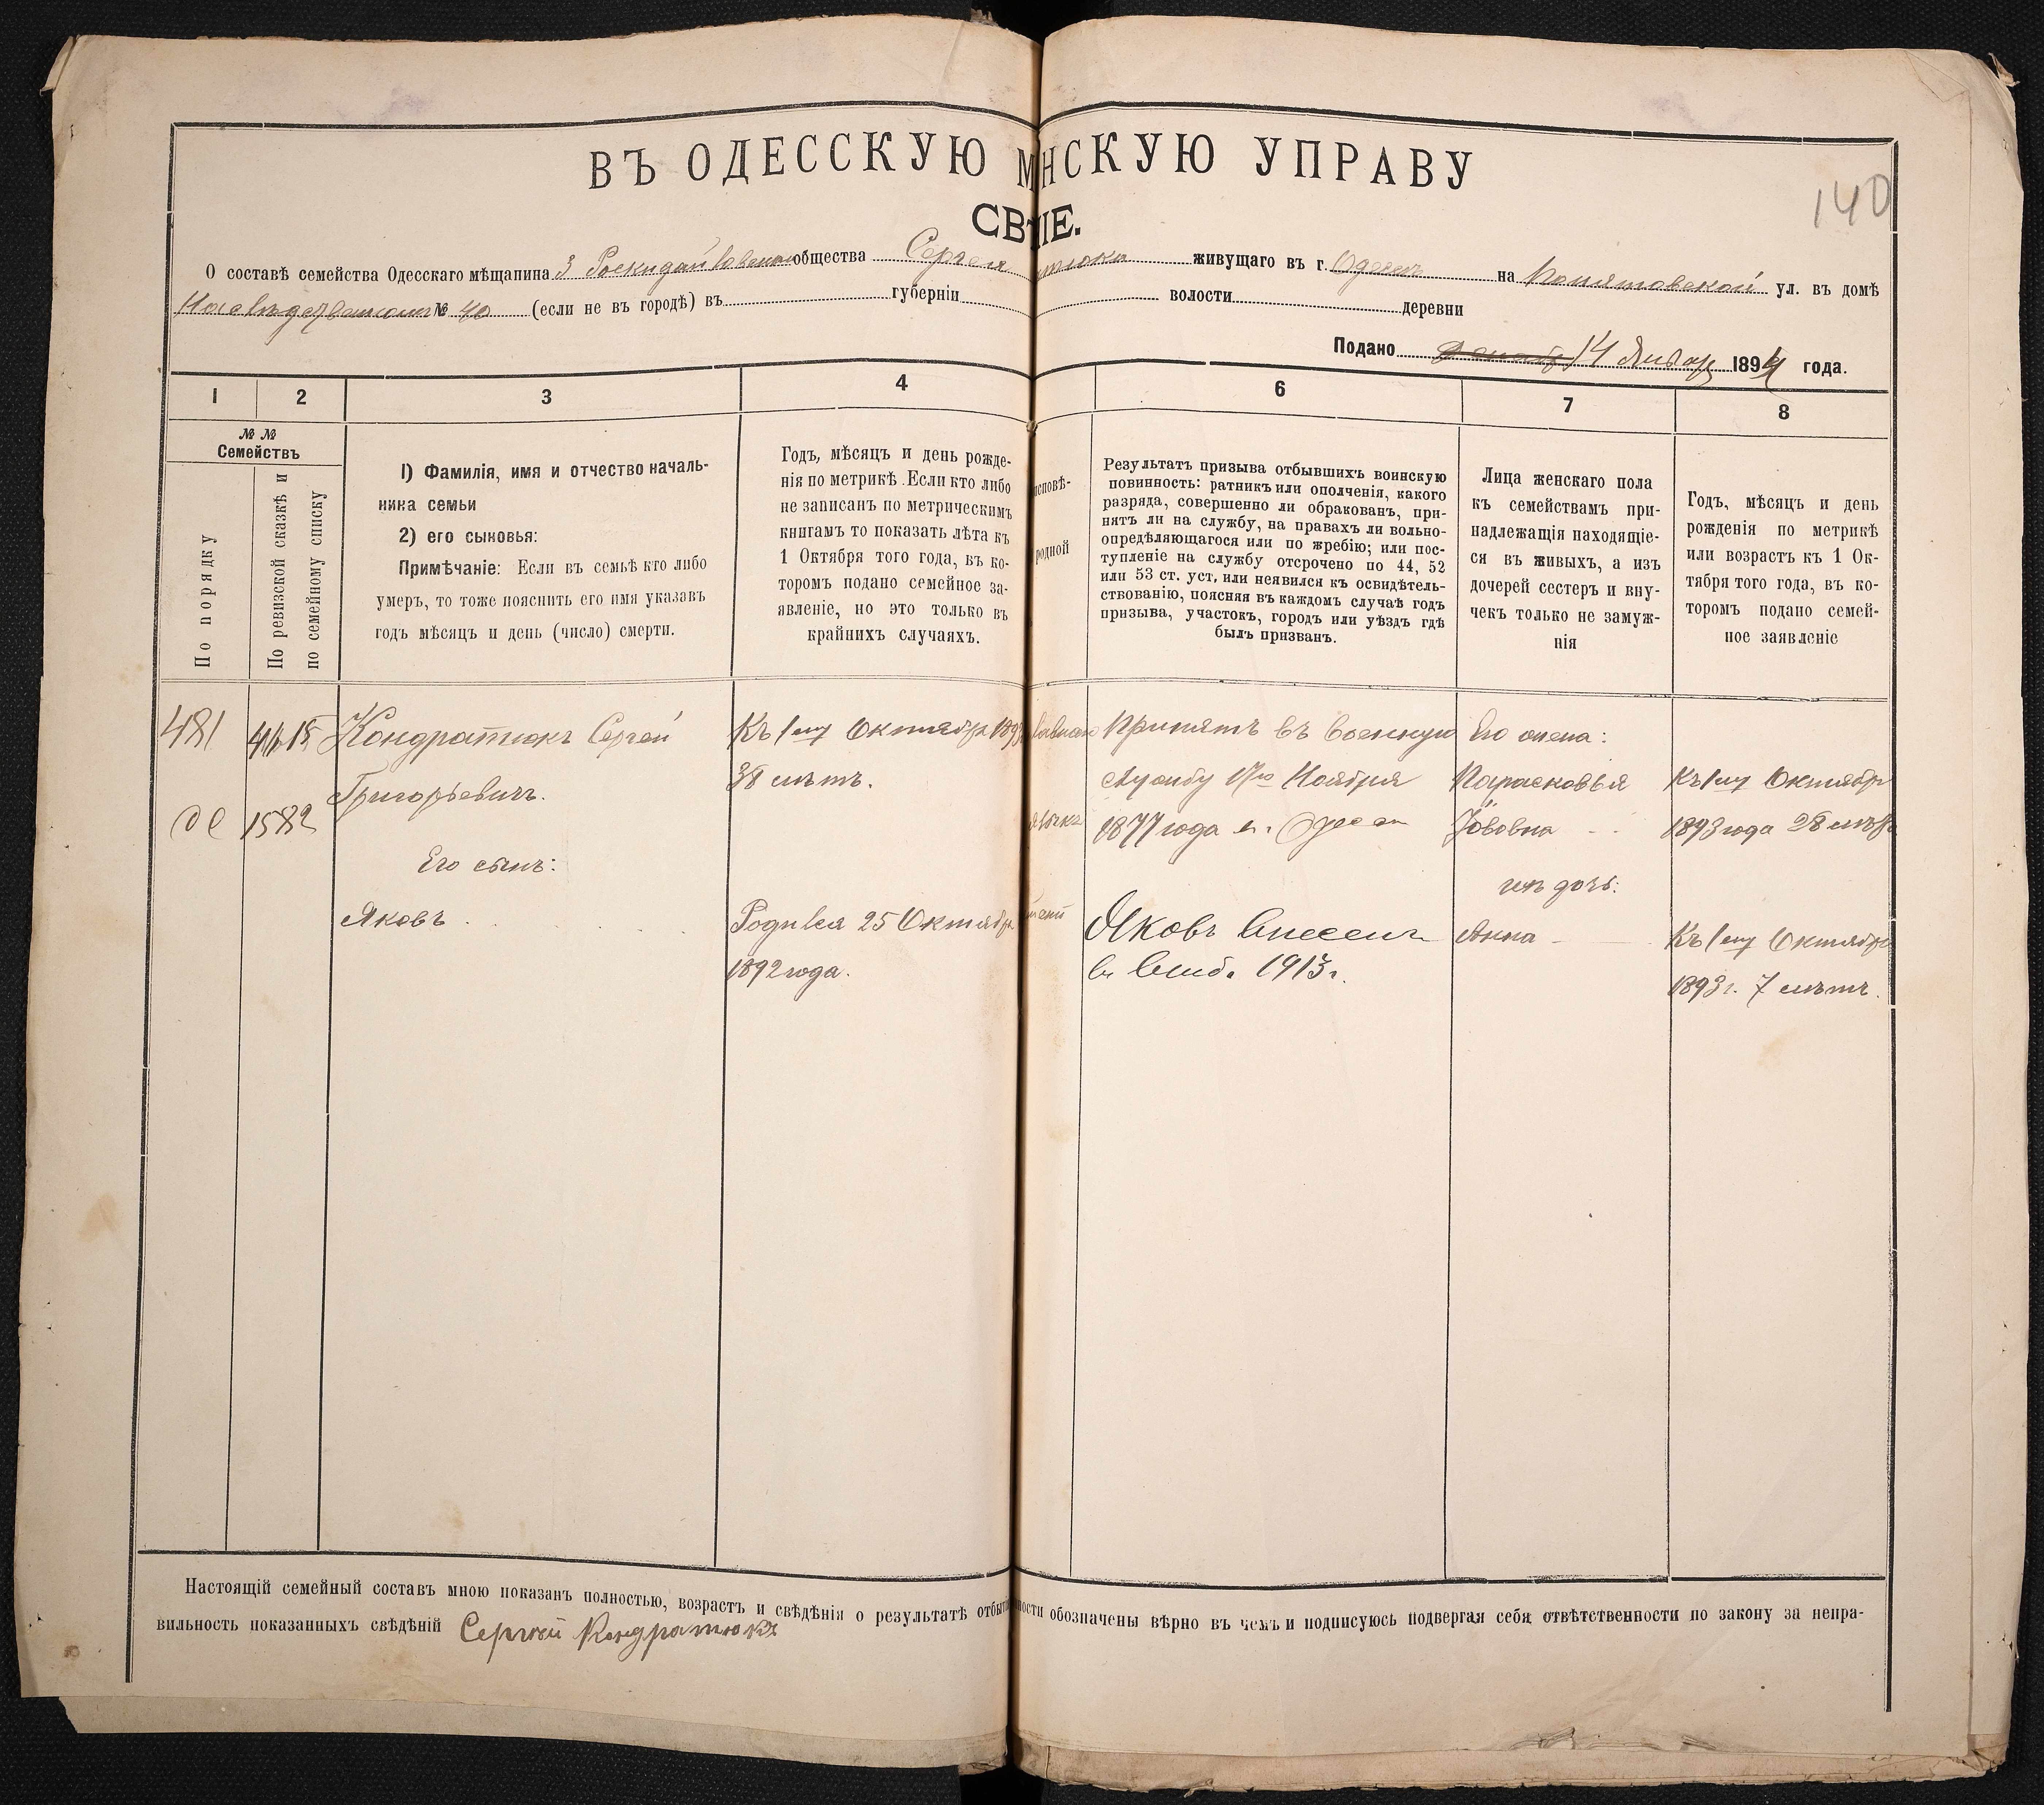 ВЪ ОДЕССКУЮ М НСКУЮ УПРАВУ
140
СВ ІЕ.
О составѣ семейства Одесскаго мѣщанина 3 общества Сергея живущаго въ г. Одессѣ на ул. въ домѣ
№ 40 (если не въ городѣ) въ губерніи волости деревни
Подано 14 Января 1894 года.
1 2 3 4 6 7 8
№ № Семействъ
По порядку
По ревизской сказкѣ и
по семейному списку
1) Фамилія, имя и отчество началь-
ника семьи
2) его сыновья:
Примѣчаніе: Если въ семьѣ кто либо
умеръ, то тоже пояснить его имя указавъ
годъ мѣсяцъ и день (число) смерти.
Годъ, мѣсяцъ и день рожде-
нія по метрикѣ. Если кто либо
не записанъ по метрическимъ
книгамъ то показать лѣта къ
1 Октября того года, въ ко-
торомъ подано семейное за-
явленіе, но это только въ
крайнихъ случаяхъ.
исповѣ-
родной
Результатъ призыва отбывшихъ воинскую
повинность: ратникъ или ополченія, какого
разряда, совершенно ли обракованъ, при-
нятъ ли на службу, на правахъ ли вольно-
опредѣляющагося или по жребію; или пос-
тупленіе на службу отсрочено по 44, 52
или 53 ст. уст, или неявился къ освидѣтель-
ствованію, поясняя въ каждомъ случаѣ годъ
призыва, участокъ, городъ или уѣздъ гдѣ
былъ призванъ.
Лица женскаго пола
къ семействамъ при-
надлежащія находящіе-
ся въ живыхъ, а изъ
дочерей сестеръ и вну-
чекъ только не замуж-
нія
Годъ, мѣсяцъ и день
рожденія по метрикѣ
или возрастъ къ 1 Ок-
тября того года, въ ко-
торомъ подано семей-
ное заявленіе
481
1582
Кондратюкъ Сергей
Григорьевичъ.
Его сынъ:
Яковъ
Къ 1му Октября 1893
38 лѣтъ.
Родился 25 Октября
1892 года.
Принятъ въ военную
службу 17го Ноября
1877 года г. Одесса
Яковъ внесенъ
въ 1913 г.
Его жена:
Парасковья
Іововна
ихъ дочь:
Анна
Къ 1му Октября
1893 года 28 лѣтъ
Къ 1му Октября
1893 г. 7 лѣтъ.
Настоящій семейный составъ мною показанъ полностью, возрастъ и свѣдѣнія о результатѣ отбы ности обозначены вѣрно въ чемъ и подписуюсь подвергая себя отвѣтственности по закону за непра-
вильность показанныхъ свѣдѣній Сергѣй Кондратюкъ